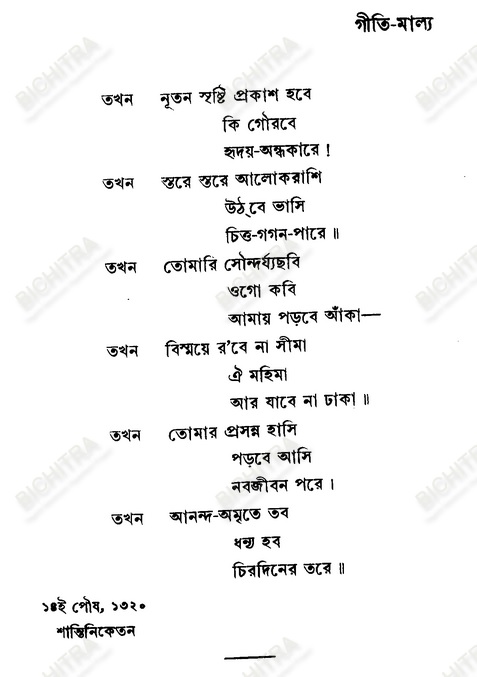 গীতি-মাল্য
তখন নূতন সৃষ্টি প্রকাশ হবে
কি গৌরবে
হৃদয়-অন্ধকারে !
তখন স্তরে স্তরে আলোকরাশি
উঠ্‌বে ভাসি
চিত্ত-গগন-পারে ॥
তখন তোমারি সৌন্দর্য্যছবি
ওগো কবি
আমায় পড়বে আঁকা—
তখন বিস্ময়ে র'বে না সীমা
ঐ মহিমা
আর যাবে না ঢাকা ॥
তখন তোমার প্রসন্ন হাসি
পড়বে আসি
নবজীবন পরে ।
তখন আনন্দ-অমৃতে তব
ধন্য হব
চিরদিনের তরে ॥
১৪ই পৌষ, ১৩২০
শান্তিনিকেতন
BICHITRA
BICHITRA
BICHITRA
BICHITRA
BICHITRA
BICHITRA
BICHITRA
BICHITRA
BICHITRA